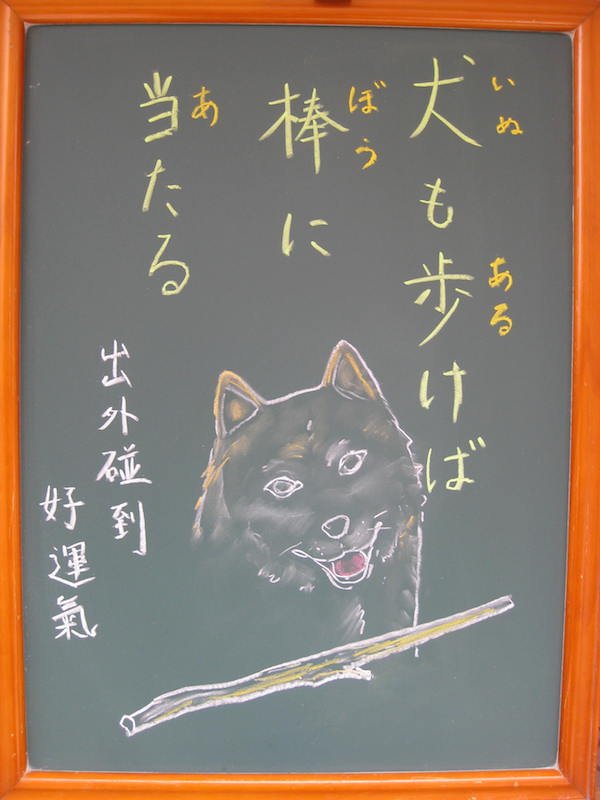 犬も歩けば
いぬ
ある
棒に
ぼう
当たる
あ
出外碰到
好運氣